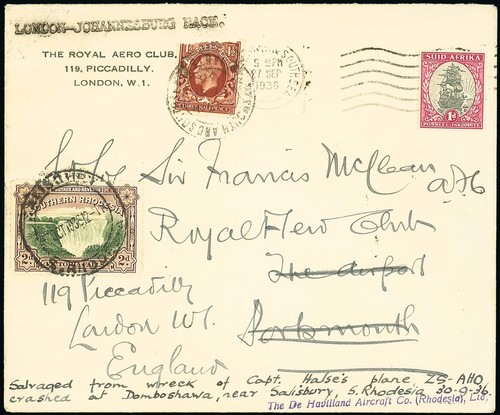 LONDON—JOHANNESBURG RACE.
THE ROYAL AERO CLUB,
119, PICCADILLY,
LONDON, W.1.
THREE HALFPENCE
SOUTHSEA
27 SEP
1936
SUID-AFRIKA
1D
POSSEEL-INKOMSTE
Sir Francis McClean
POSTAGE AND REVENUE
SOUTHERN RHODESIA
2D 2D
Royal Aero Club
The Airport
119 Piccadilly
London W1.
Portsmouth
England
Salvaged from wreck of Capt. Halse's plane, ZS-AHO,
crashed at Domboshawa, near Salisbury, S. Rhodesia 30-9-36
The De Havilland Aircraft Co. (Rhodesia), Ltd.